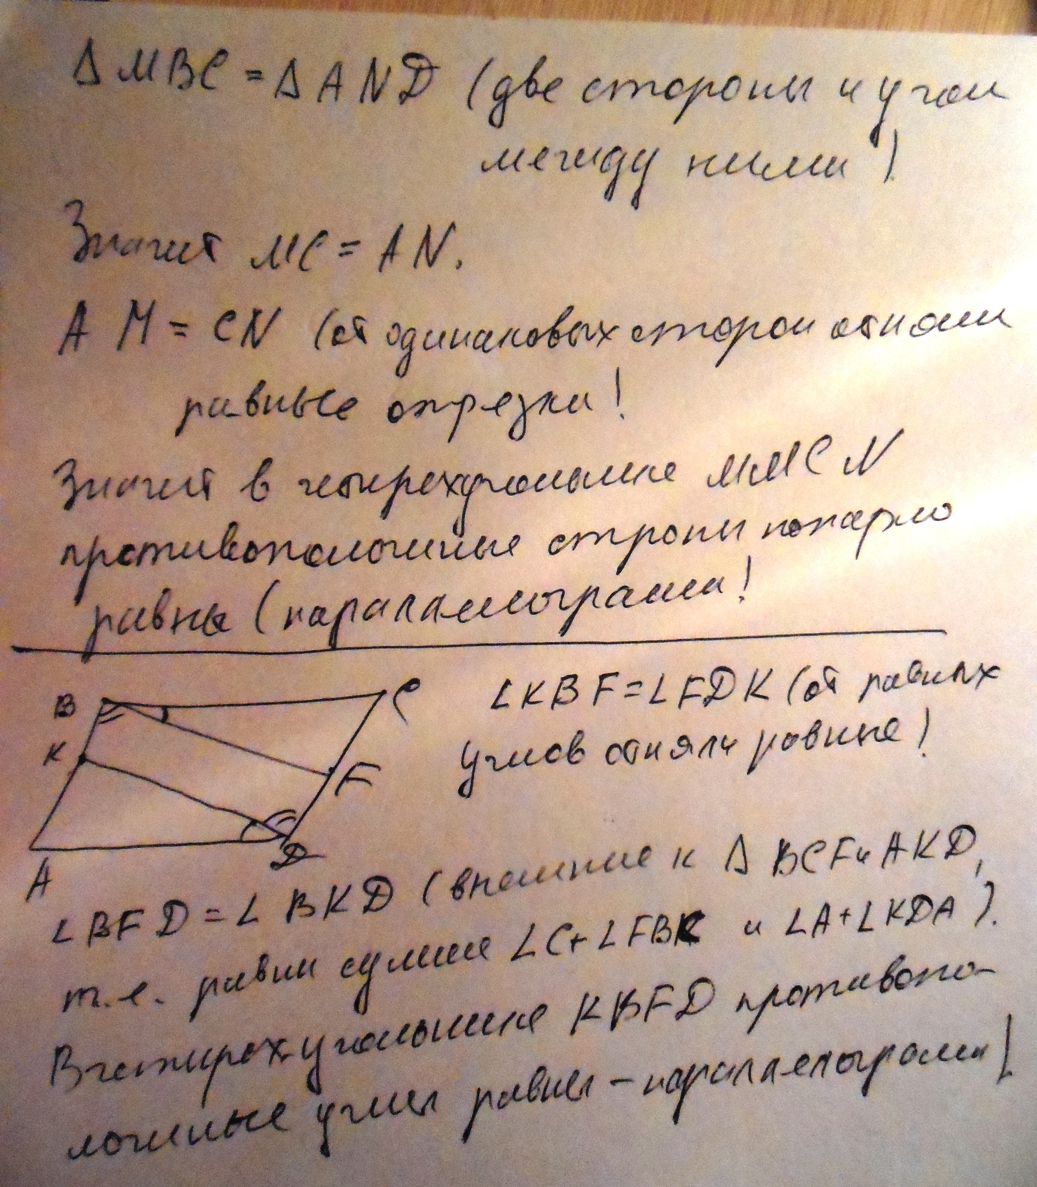 Δ MBC = Δ AND (две стороны и угол
между ними)
Значит MC = AN.
AM = CN (от одинаковых сторон отняли
равные отрезки!
Значит в четырехугольнике MMCN
противоположные строны попарно
равны (паралаелограмм!
B
C
K
F
A
D
∠KBF = ∠FDK (от равных
углов отняли равные)
∠BFD = ∠BKD (внешние к Δ BCF и AKD,
т.е. равны сумме ∠C+∠FBK и ∠A+∠KDA).
В четырехугольнике KBFD противопо-
ложные углы равны - паралаелограмм!